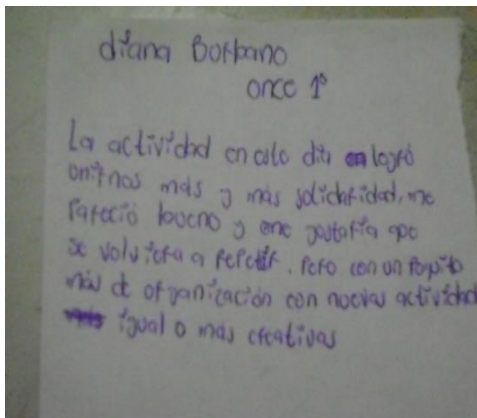 diana Borbano
once 1°
La actividad en este día logró
unirnos más y más solidaridad, me
Pareció bueno y me gustaría que
se volviera a repetir. Pero con un Poquito
más de organización con nuevas actividad
igual o más creativas